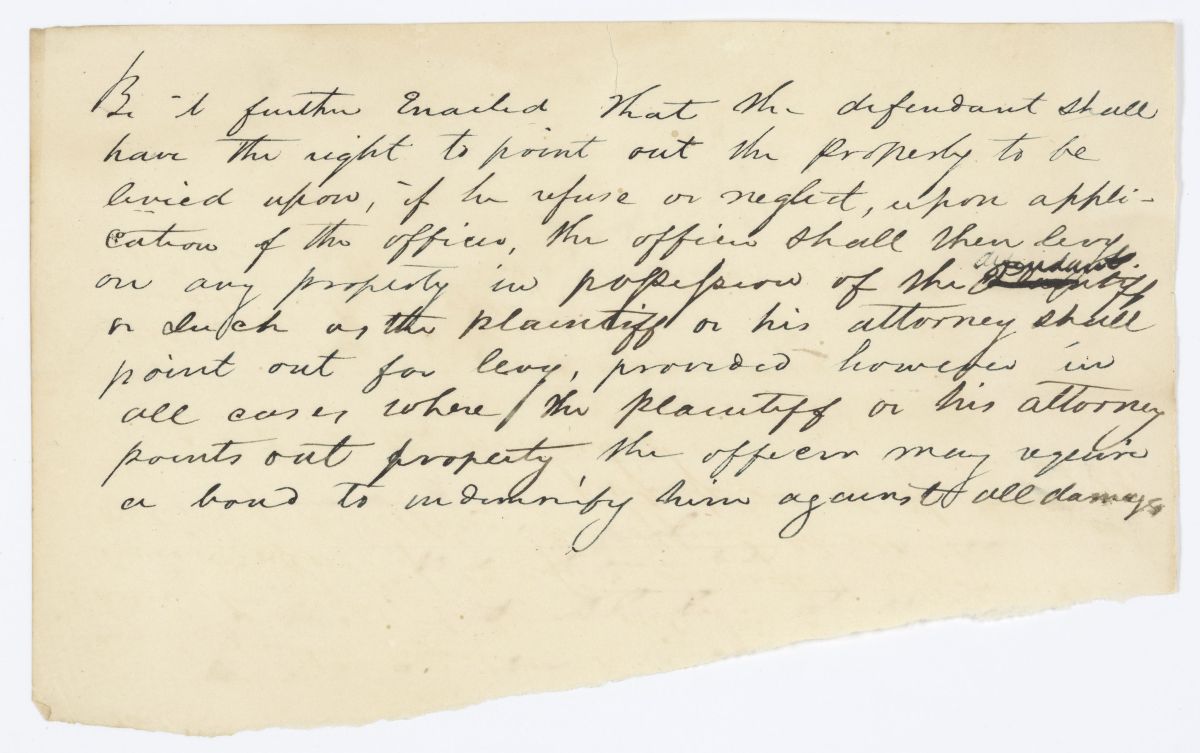 Be it further Enacted That the defendant shall
have the right to point out the property to be
levied upon, if he refuse or neglect, upon appli-
cation of the officer, the officer shall then levy
on any property in possession of the defendant
or such as the plaintiff or his attorney shall
point out for levy, provided however in
all cases where the plaintiff or his attorney
points out property the officer may require
a bond to indemnify him against all damage